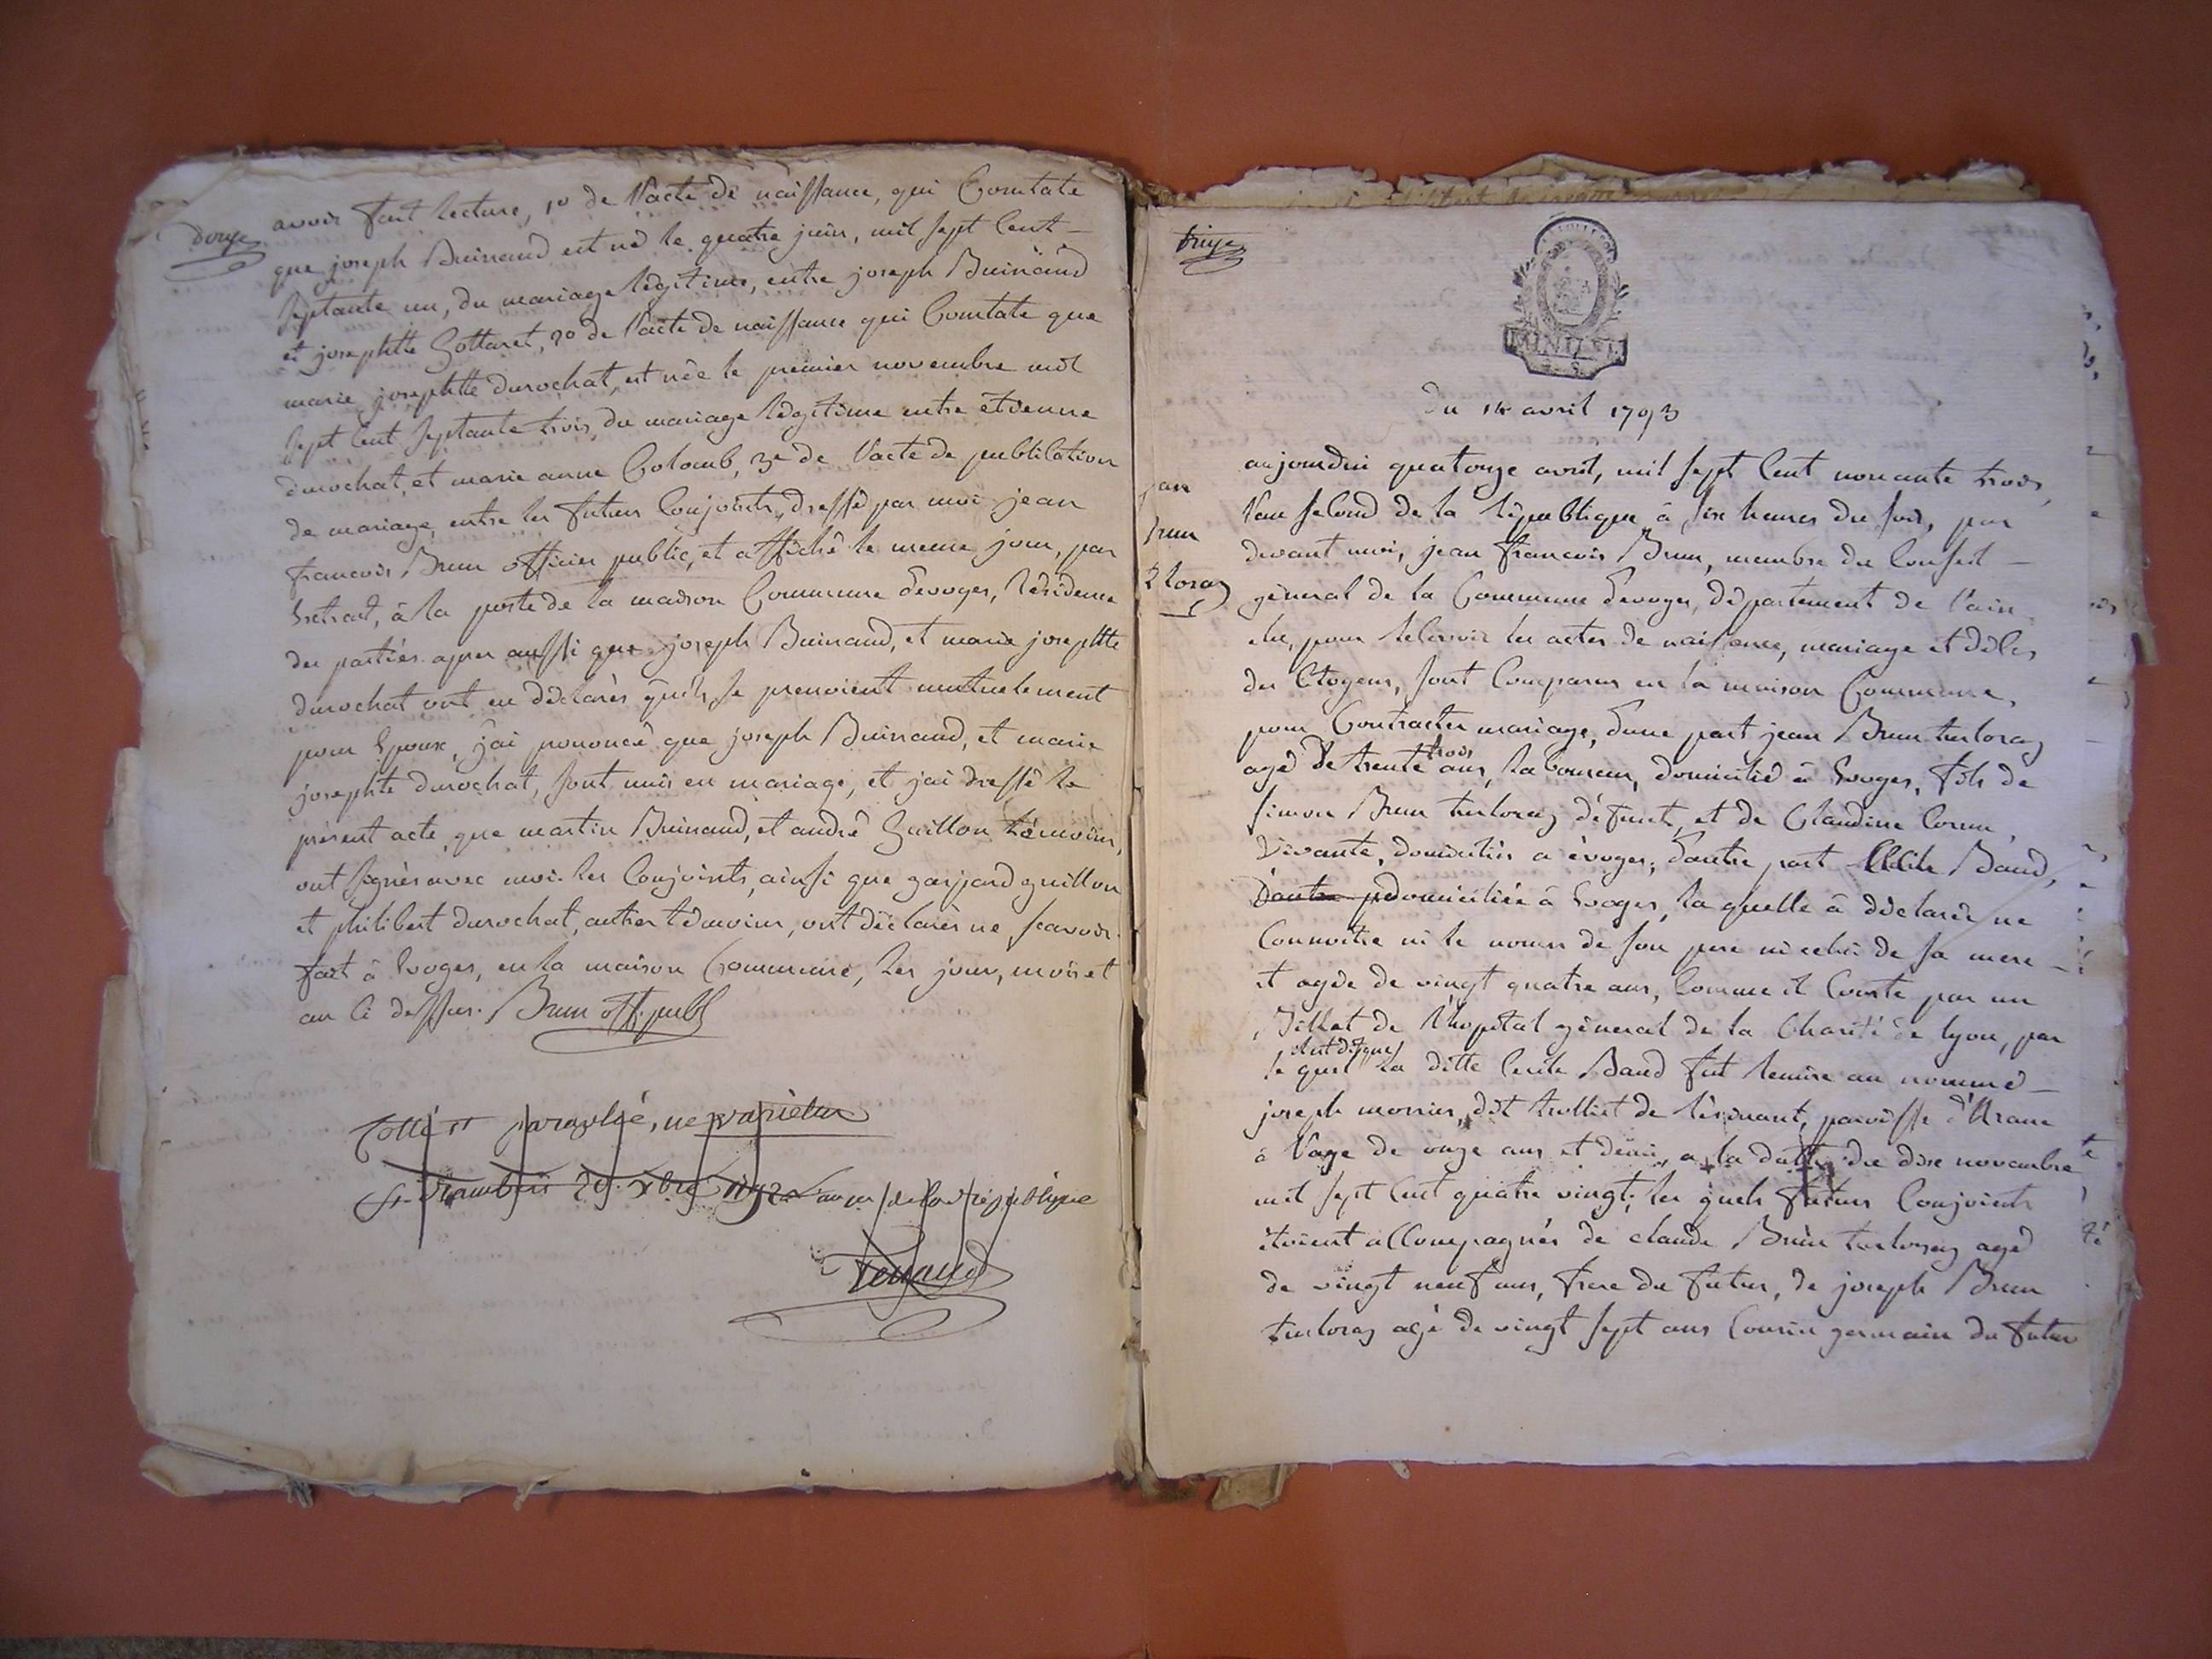 douze
avoir fait lecture, 1º de l'acte de naissance, qui Comtate
que joseph Buinand est né le quatre juin, mil sept Cent –
septante un, du mariage légitime, entre joseph Buinand
et josephtte Gottaret, 2º de l'acte de naissance qui Comtate que
marie josephtte durochat, est née le premier novembre mil
sept Cent septante trois, du mariage légitime entre étienne
durochat, et marie anne Colomb, 3e de l'acte de publication
de mariage, entre les futurs Conjoints, dressé par moi jean
francois Brun officier public, et affiché le meme jour, par
Extrait, à la porte de la maison Commune dévoges, résidence
des parties. apres aussi que joseph Buinand, et marie josephtte
durochat ont eu déclarés qu'ils se prenoient mutuelement
pour Epoux, j'ai prononcé que joseph Buinand, et marie
josephte durochat, sont unis en mariage, et j'ai dressé le
présent acte, que martin Buinand, et andré Guillon témoins,
ont signés avec moi. les Conjoints, ainsi que gaspard guillon
et philibert durochat, autres témoins, ont déclarés ne scavoir.
fait à Evoges, en la maison Commune, les jour, mois et
an Ci dessus. Brun off. publ
Cotté et paraphé, ne varietur
St. Rambert 29. xbre 1792 an 1er de la république
treize
MINUTE
Du 14 avril 1793
jan
brun
tloraz
aujourdui quatorze avril, mil sept Cent nonante trois,
l'an second de la république à six heures du soir, par
devant moi, jean francois Brun, membre du Conseil –
géneral de la Commune devoges, département de l'ain
elu, pour recevoir les actes de naissance, mariage et décès
des Citoyens, sont Comparus en la maison Commune,
pour Contracter mariage, d'une part jean Brun turloraz
agé de trente trois ans, laboureur, domicilié à Evoges, fils de
simon Brun turloraz défunt, et de Claudine Corun,
vivante, domiciliés a évoges; d'autre part Cecile Baud,
D'autre p domiciliée à Evoges, la quelle à déclarée ne
Connoitre ni le nom de son pere ni celui de sa mere –
et agée de vingt quatre ans, Comme il Conste par un
Billet de l'hopital géneral de la Charité de lyon, par
le quel il est dit que la ditte Cecile Baud fut remise au nommé –
joseph monnier, dit trolliet de résinant, paroisse d'Arane
à l'age de onze ans et demi, a la datte du dix novembre
mil sept Cent quatre vingt; les quels futurs Conjoints
étoient aCCompagnés de claude Brun turloraz agé
de vingt neuf ans, frere du futur, de joseph Brun
turloraz agé de vingt sept ans Cousin germain du futur